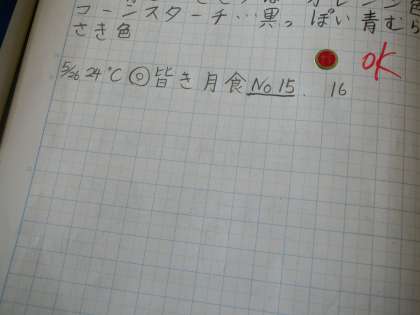 コーンスターチ…黒っぽい青むら
さき色
OK
5/26 24℃ ◎皆き月食 No 15. 16